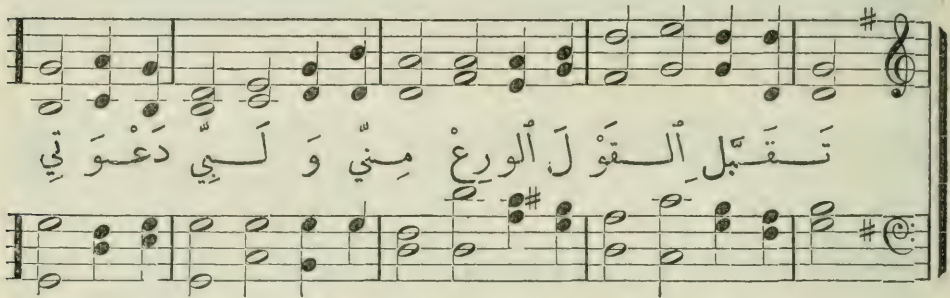 تَـــقَـبَّلِ ٱلــقَوْ لَ ٱلورِعْ مِـنِّي وَ لَــبِّي دَعْـوَ تِي